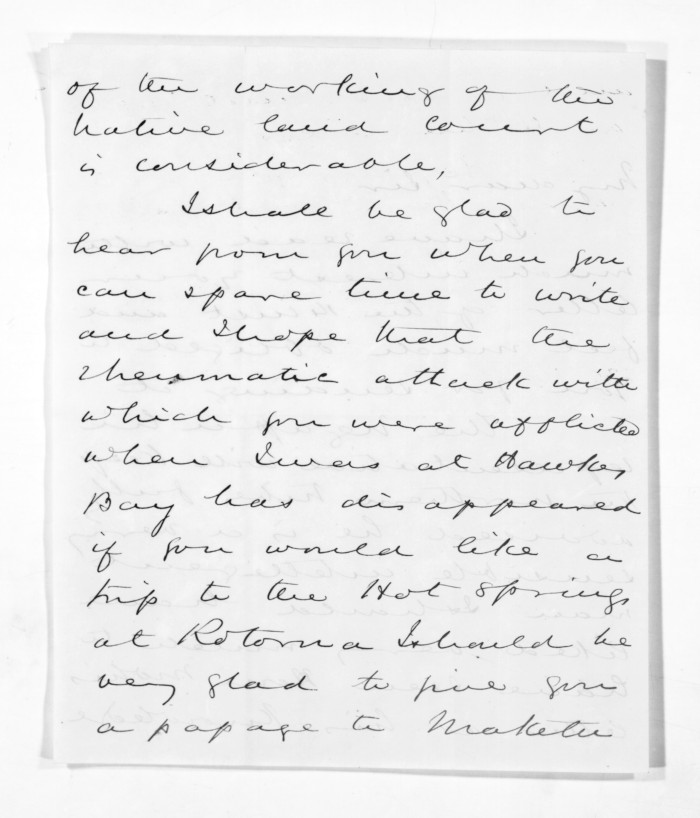 of the working of the
Native land Court
is considerable,
I shall be glad to
hear from you when you
can spare time to write
and I hope that the
rheumatic attack with
which you were afflicted
when I was at Hawkes
Bay has disappeared
if you would like a
trip to the Hot Springs
at Rotorua I should be
very glad to give you
a passage to Maketu